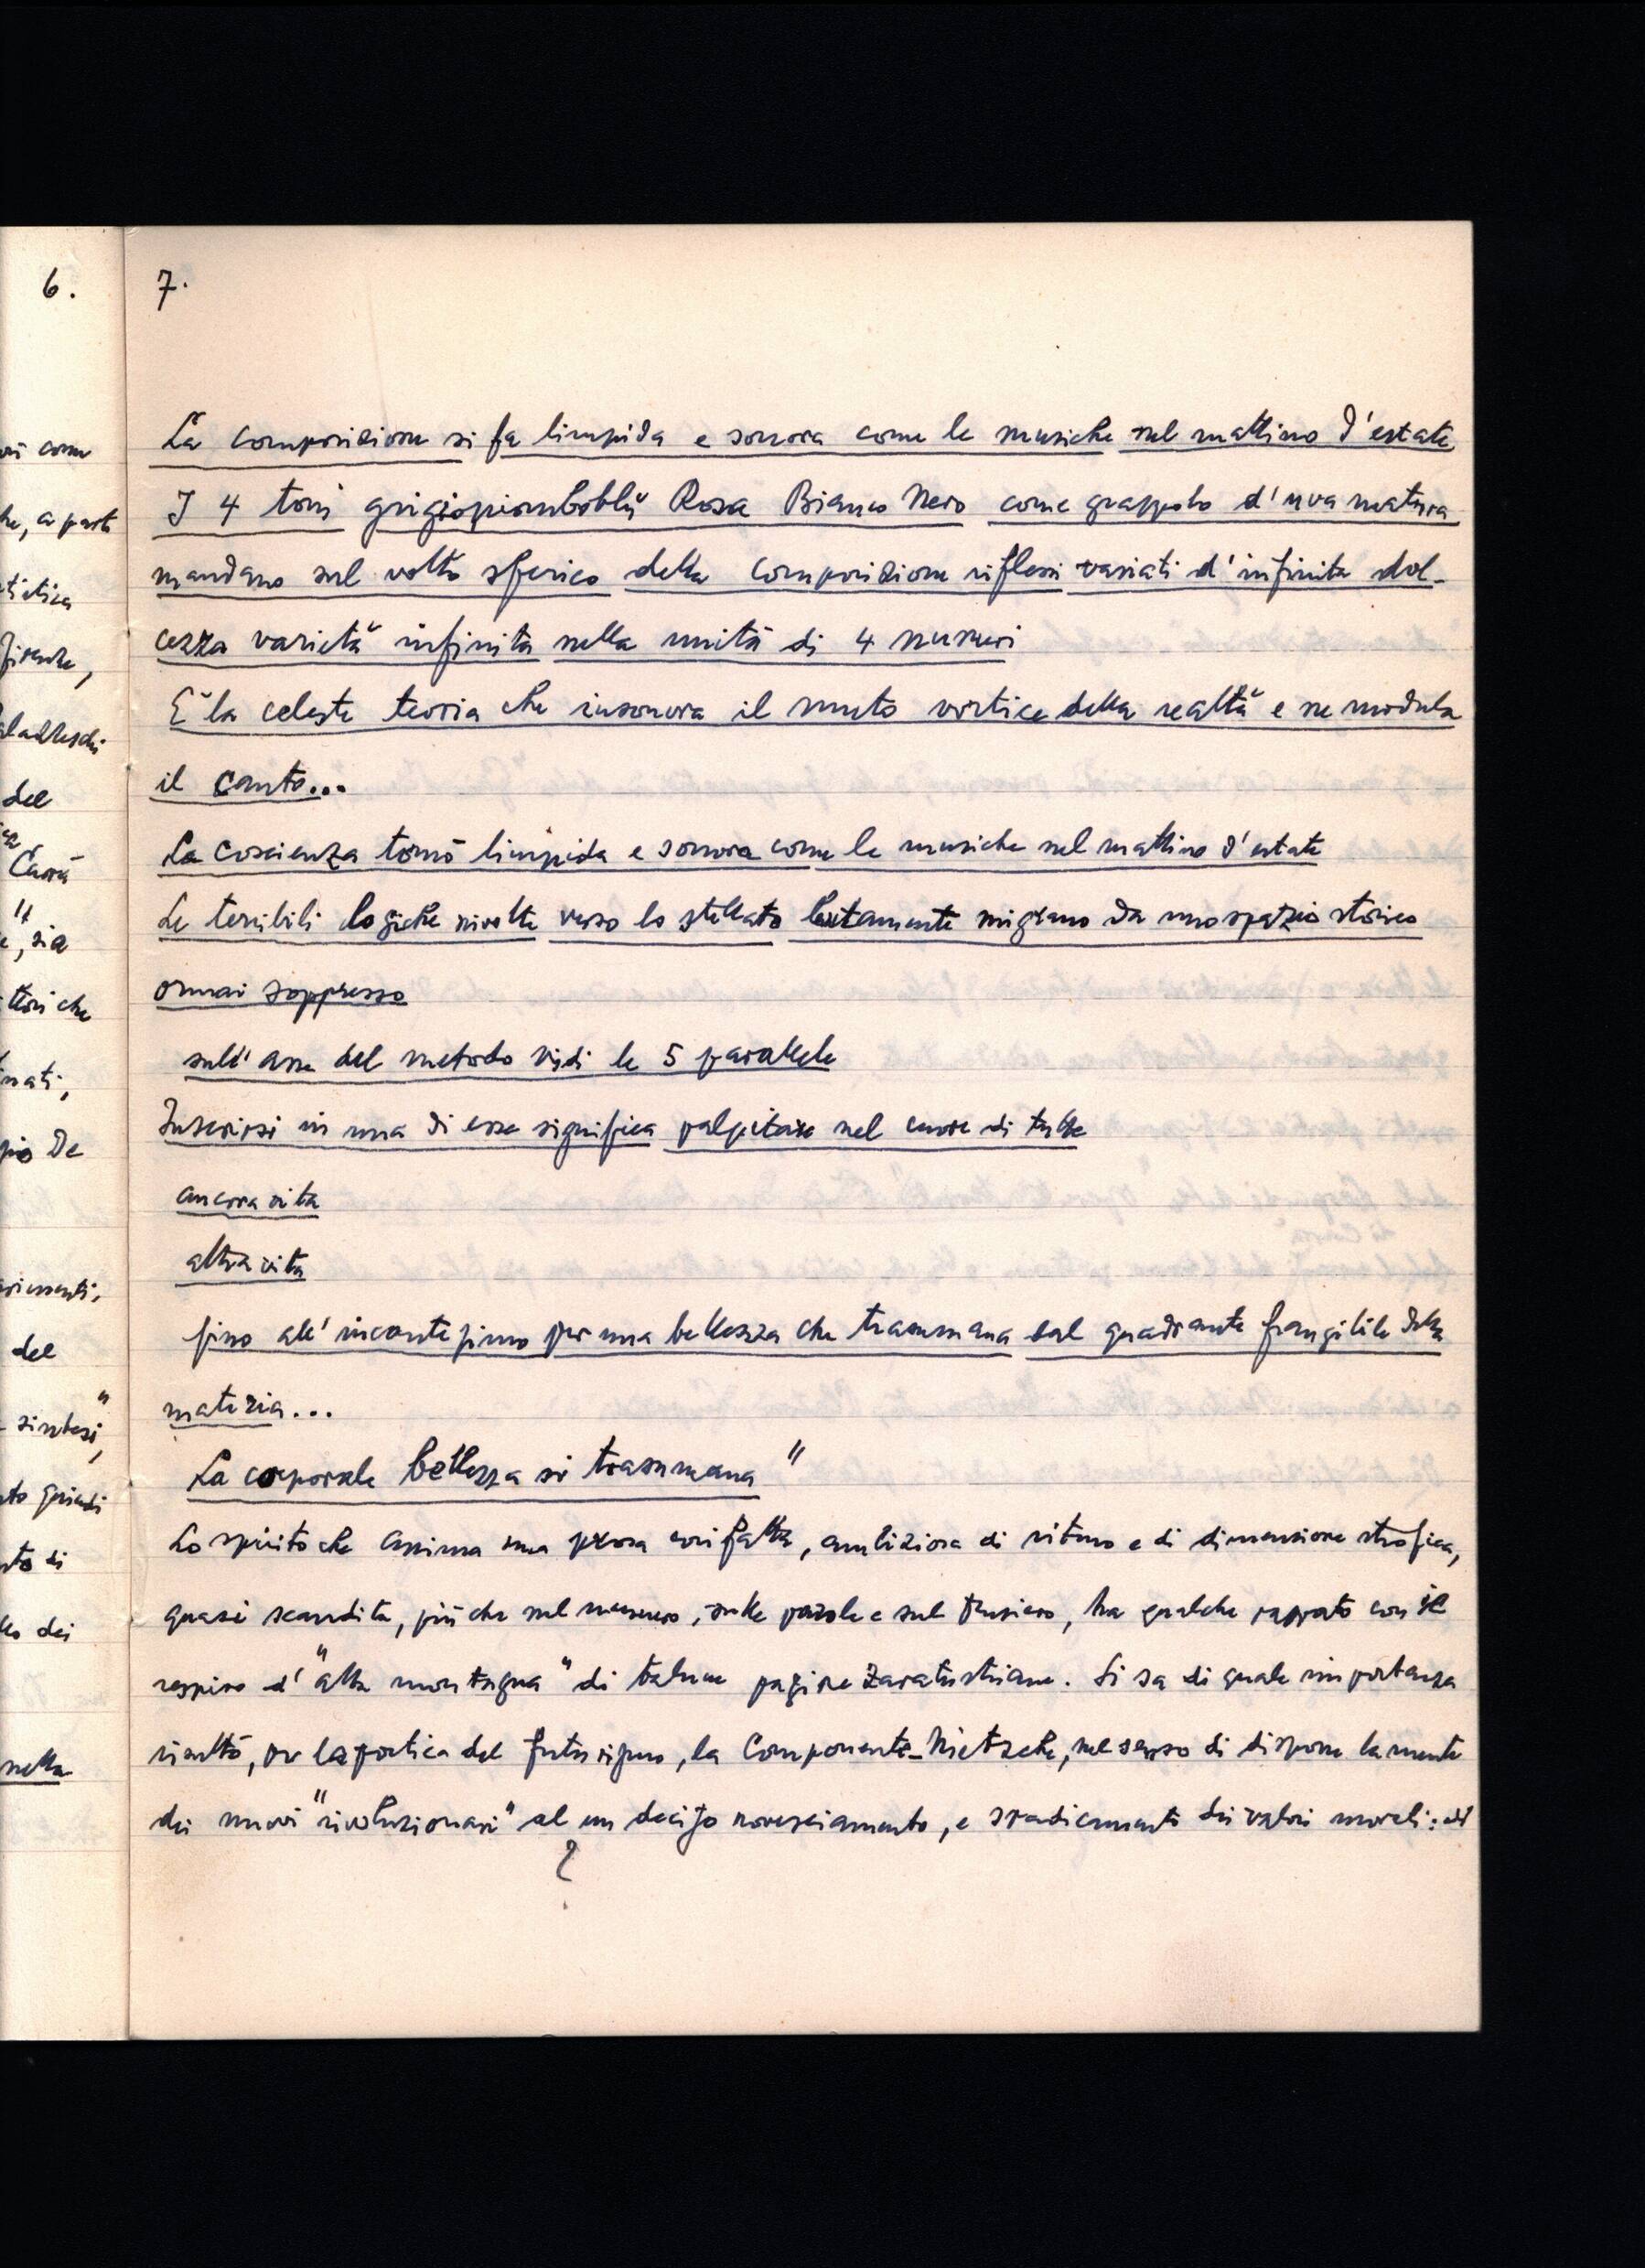 6.
7.
La composizione si fa limpida e sonora come le musiche nel mattino d'estate
I 4 toni grigiopiomboblù Rosa Bianco Nero come grappolo d'uva matura
mandano sul volto sferico della composizione riflessi variati d'infinita dol-
cezza varietà infinita nella unità di 4 numeri
È la celeste teoria che insonora il muto vortice della realtà e ne modula
il canto...
La coscienza tornò limpida e sonora come le musiche nel mattino d'estate
Le terribili logiche rivolte verso lo stellato lentamente migrano da uno spazio storico
ormai soppresso
sull'asse del metodo vidi le 5 parallele
Inserirsi in una di esse significa palpitare nel cuore di tutte
ancora vita
altra vita
fino all'incontesimo per una bellezza che trasumana dal quadrante frangibile della
materia...
La corporale bellezza si trasumana"
Lo spirito che anima una prosa così fatta, ambiziosa di ritmo e di dimensione strofica,
quasi scandita, più che sul numero, sulle parole e sul pensiero, ha qualche rapporto con il
respiro d'"alta montagna" di talune pagine zaratustriane. Si sa di quale importanza
risultò, per la poetica del futurismo, la Componente-Nietzsche, nel senso di disporre la mente
dei nuovi "rivoluzionari" ad un deciso rovesciamento, e sradicamento dei valori morali: ed
?
ori come
che, a parte
Firenze,
del
Carrà
", sia
ttori che
nati,
pio De
rimenti,
del
sintesi",
to quindi
to di
dei
nella